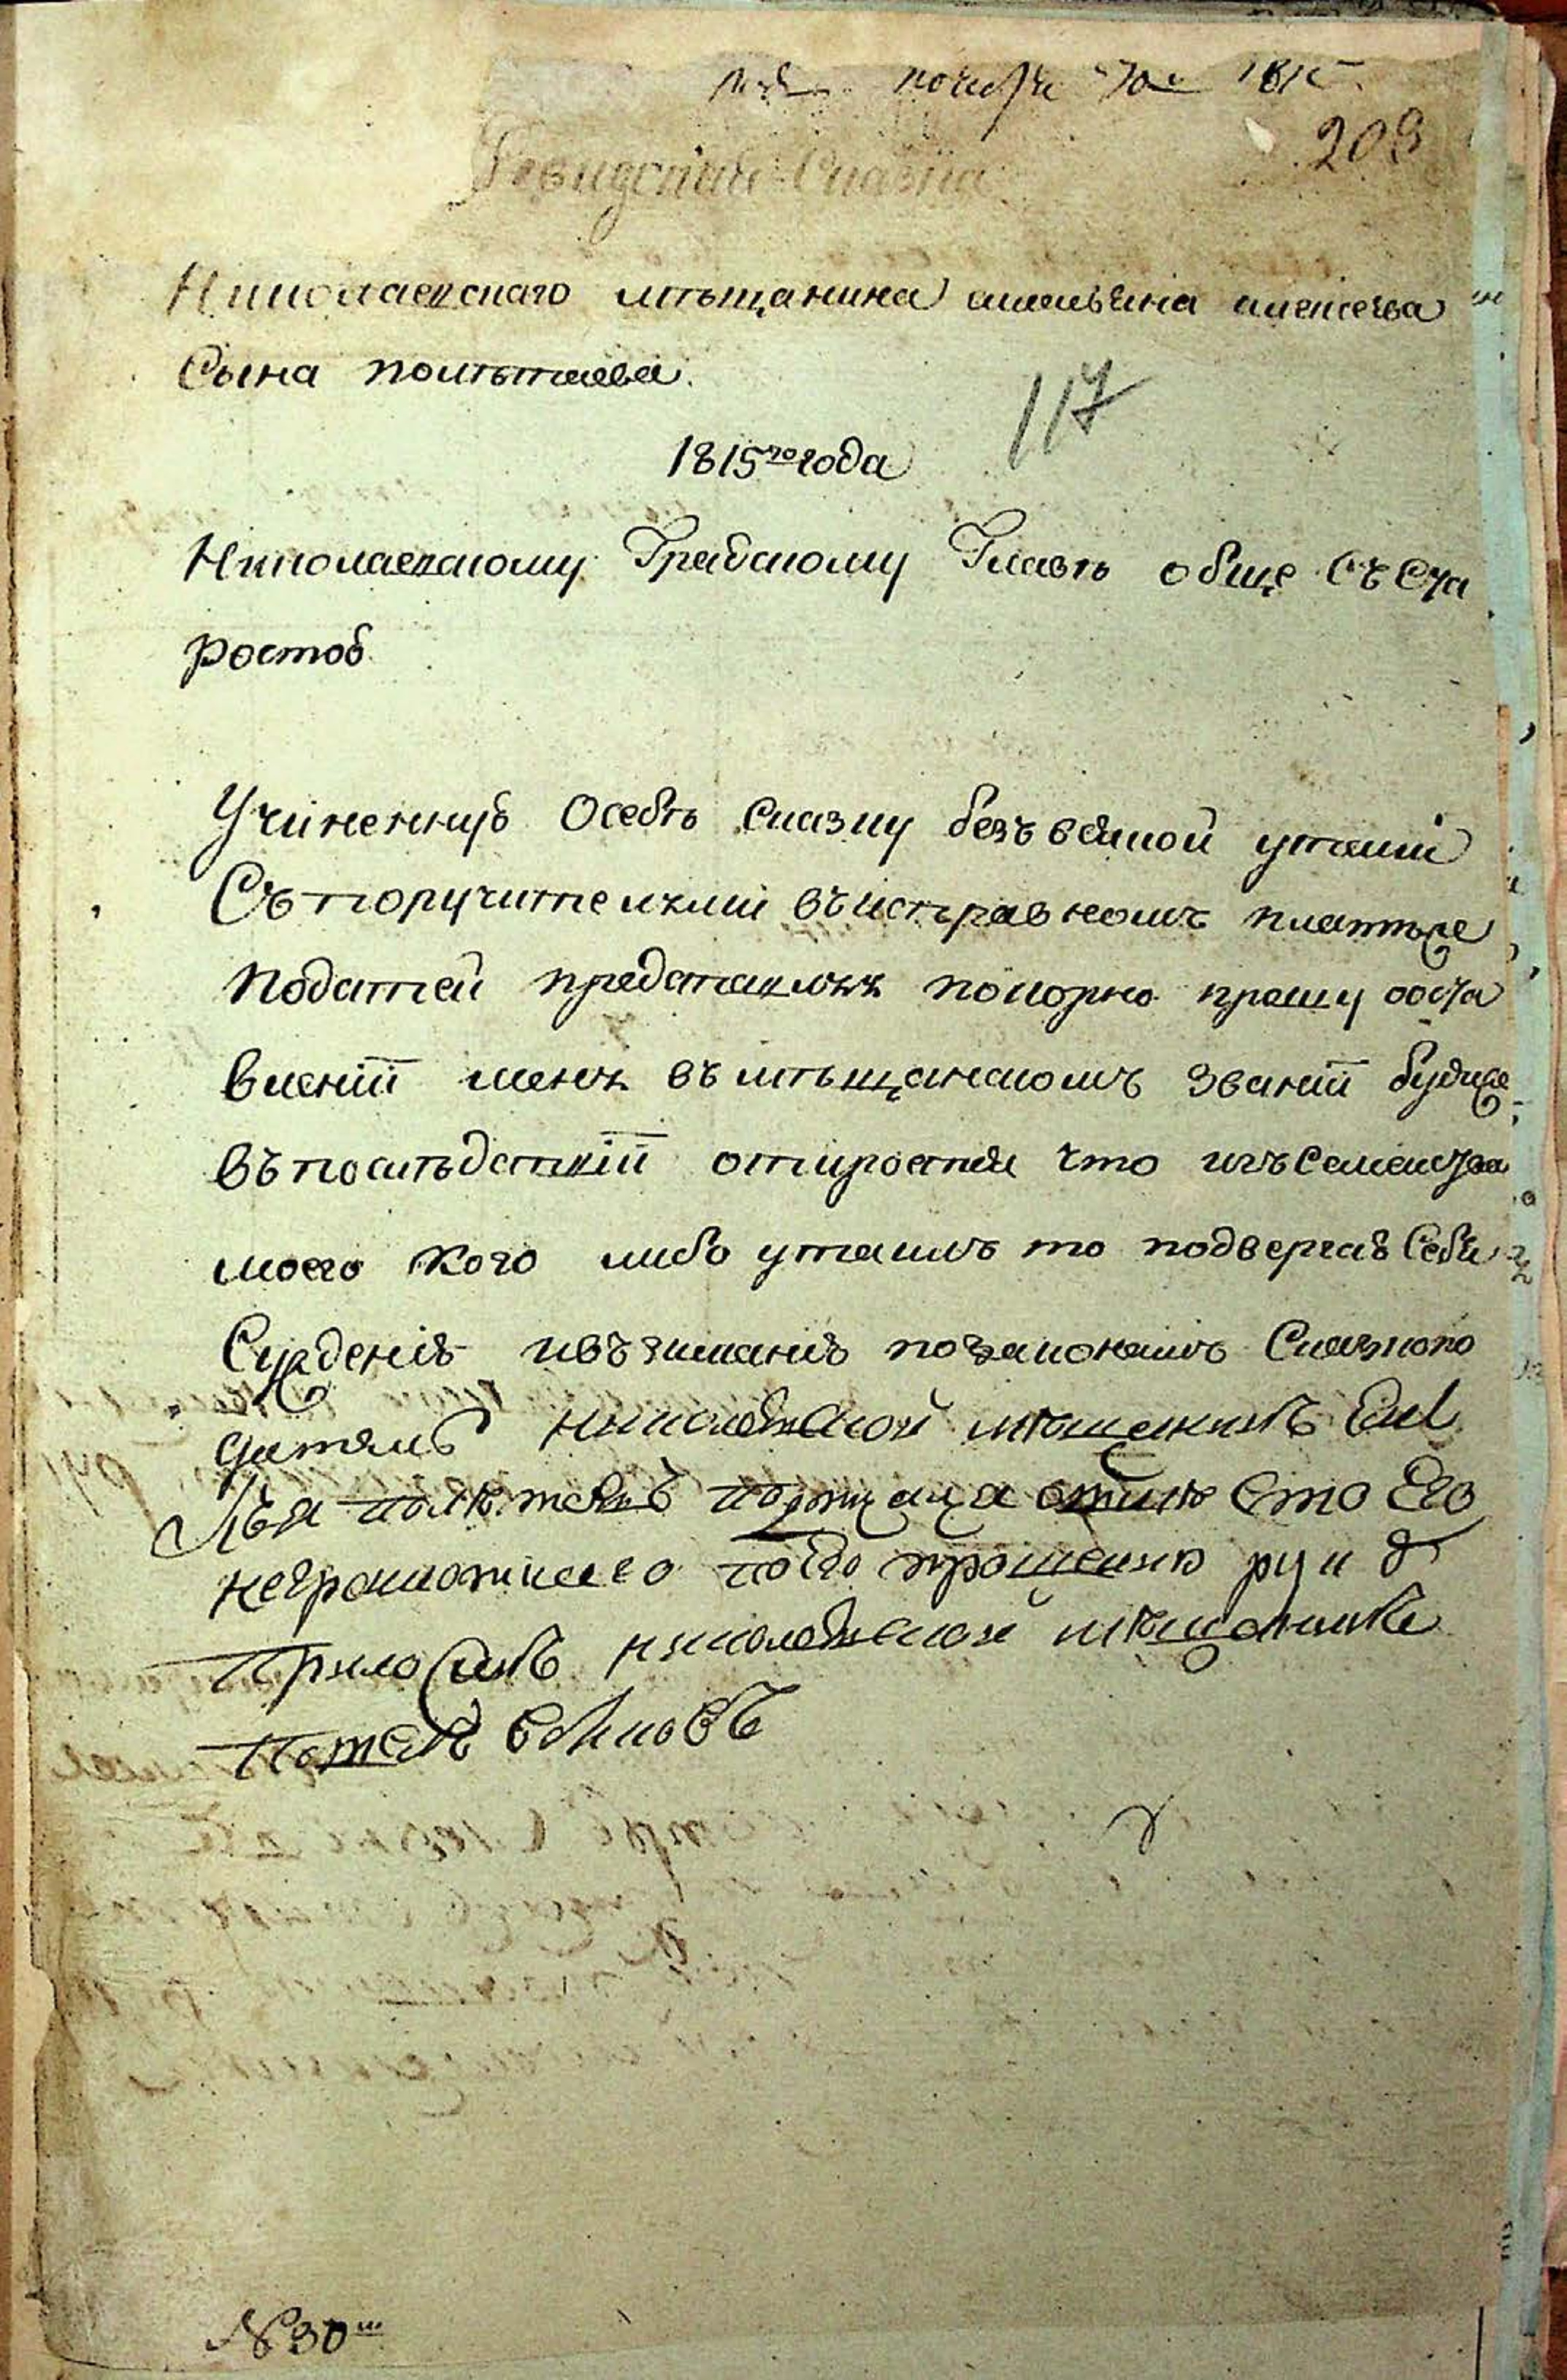 ноября 1815
209
Ревидская Сказка
Николаевскаго мѣщанина амельяна алексеева
Сына полѣтаева.
117
1815го года
Николаевскому Градскому Главѣ обще съ Ста
ростоб
Учиненнуб Осебѣ Сказку безъ всякой утаии
Съ поручителями въ исправномъ платѣже
податей представляя покорно прошу оста
влении меня въ мѣщанскомъ звании будиже
въ послѣдствіи откроется что изъ Семейства
моего Кого либо утаилъ то подвергаб Себя
Сужденіб изъисканиб по законамъ Сказкопо
дателъ николаевской мѣщенинъ Емел
Лья полѣтевъ Ето Его
неграмотнаго по Его прошению руку
Приложилъ николаевской мѣщанинъ
Потап
№ 30й